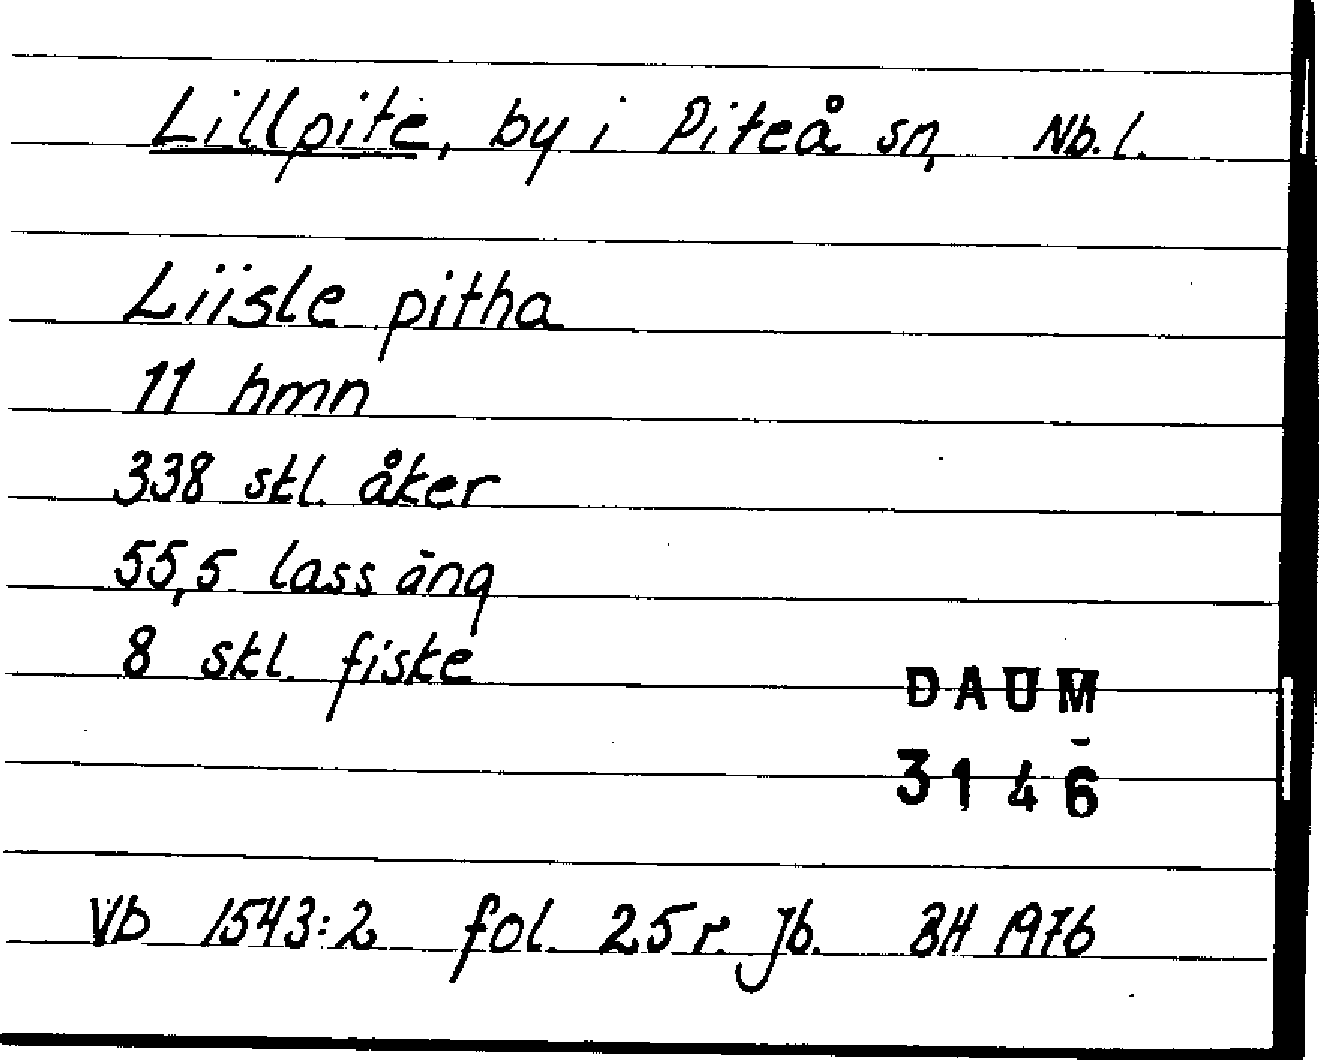 Lillpite, by i Piteå sn, Nb. l.
Liisle pitha
11 hmn
338 skl. åker
55,5 lass äng
8 skl. fiske
DAUM
3146
Vb 1543:2 fol. 25 r. Jb. BH 1976